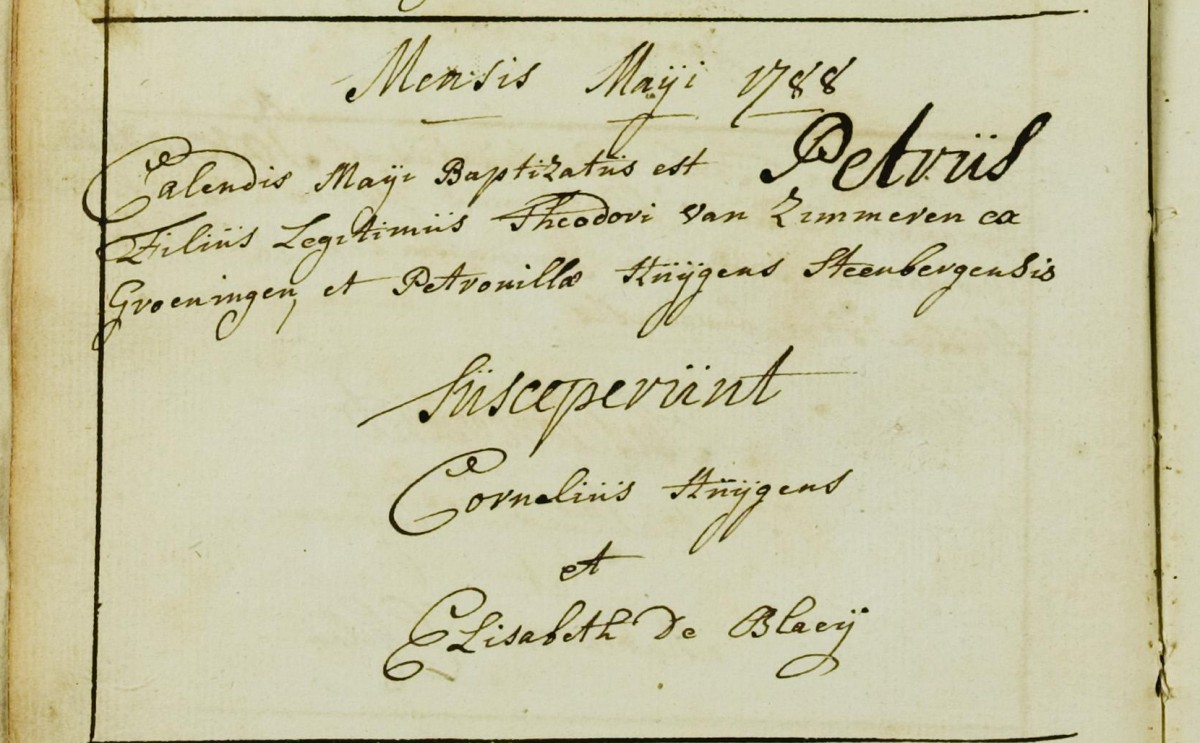 Mensis Mayi 1788
Calendis Mayi Baptizatus est Petrus
Filius Legitimus Theodori van Zimmeren ex
Groeningen, et Petronillæ Huÿgens Steenbergensis
Susceperunt
Cornelius Huÿgens
et
Elisabeth De Blaeij